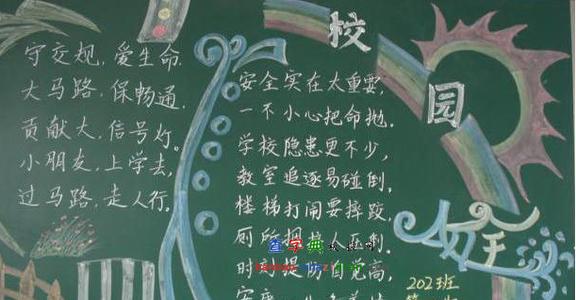 守交规,爱生命.
大马路,保畅通.
贡献大,信号灯。
小朋友,上学去,
过马路,走人行.
校园
安全
安全实在太重要,
一不小心把命抛.
学校隐患更不少,
教室追逐易碰倒.
楼梯打闹要摔跤,
厕所拥挤人
时刻提 自觉高,
查字典
202班